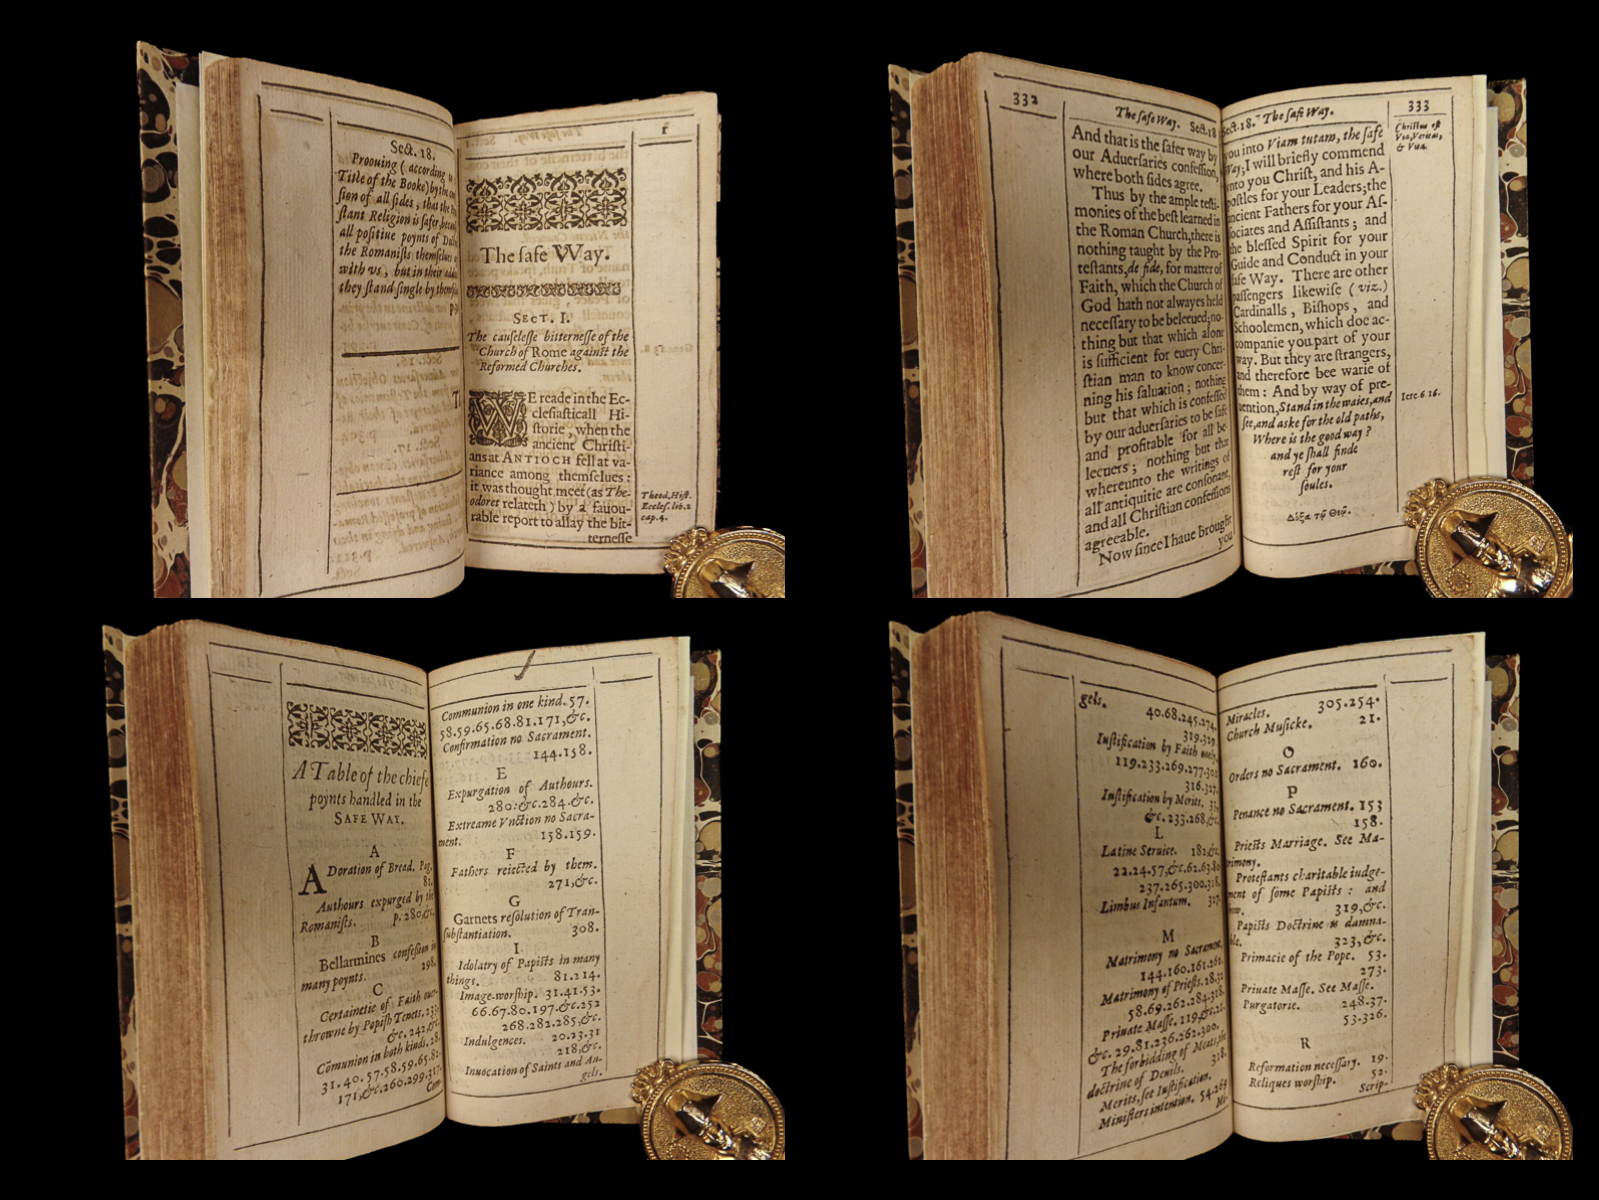 Sect. 18.
Prooving (according
Title of the Booke) by the
sion of all sides, that the
stant Religion is safer,
all positiue poynts of
the Romanists themselues
with vs, but in their
they stand single by
1
The safe Way.
SECT. I.
The causelesse bitternesse of the
Church of Rome against the
Reformed Churches.
WE reade in the Ec-
clesiasticall Hi-
storie, when the
ancient Christi-
ans at ANTIOCH fell at va-
riance among themselues:
it was thought meet (as The-
odoret relateth) by a fauou-
rable report to allay the bit-
ternesse
Theod. Hist.
Eccles. lib. 2
cap. 4.
332
The safe Way. Sect. 18
And that is the safer way by
our Aduersaries confession,
where both sides agree.
Thus by the ample testi-
monies of the best learned in
the Roman Church, there is
nothing taught by the Pro-
testants, de fide, for matter of
Faith, which the Church of
God hath not alwayes held
necessary to be beleeued; no-
thing but that which alone
is sufficient for euery Chri-
stian man to know concer-
ning his saluation; nothing
but that which is confessed
by our aduersaries to be safe
and profitable for all be-
leeuers; nothing but that
whereunto the writings of
all antiquitie are consonant,
and all Christian confessions
agreeable.
Now since I haue brought
you
Sect. 18. The safe Way.
333
you into Viam tutam, the safe
Way; I will briefly commend
vnto you Christ, and his A-
postles for your Leaders; the
ancient Fathers for your As-
sociates and Assistants; and
the blessed Spirit for your
Guide and Conduct in your
safe Way. There are other
passengers likewise (viz.)
Cardinalls, Bishops, and
Schoolemen, which doe ac-
companie you part of your
way. But they are strangers,
and therefore bee warie of
them: And by way of pre-
uention, Stand in the waies, and
see, and aske for the old paths,
Where is the good way?
and ye shall finde
rest for your
soules.
Δόξα τῷ Θεῷ.
Christus est
Via, Veritas,
& Vita.
Iere. 6 16.
A Table of the chiefe
poynts handled in the
SAFE WAY.
A
ADoration of Bread. Pag.
81.
Authours expurged by the
Romanists. p. 280,&c.
B
Bellarmines confession in
many poynts. 298.
C
Certainetie of Faith ouer-
throwne by Popish Tenets.
&c. 242,&c.
Cōmunion in both kinds. 28.
31. 40. 57. 58. 59. 65. 81.
171,&c. 260. 299. 317.
Com-
Communion in one kind. 57.
58. 59. 65. 68. 81. 171,&c.
Confirmation no Sacrament.
144. 158.
E
Expurgation of Authours.
280.&c. 284.&c.
Extreame Vnction no Sacra-
ment. 158. 159.
F
Fathers reiected by them.
271,&c.
G
Garnets resolution of Tran-
substantiation. 308.
I
Idolatry of Papists in many
things. 81. 214.
Image-worship. 31. 41. 53.
66. 67. 80. 197.&c. 252
268. 282. 285,&c.
Indulgences. 20. 23. 31
218,&c.
Inuocation of Saints and An-
gels.
gels. 40. 68. 245. 274.
319. 329.
Iustification by Faith onely.
119. 233. 269. 277.
316. 327.
Iustification by Merits.
&c. 233. 268,&c.
L
Latine Seruice. 182,&c.
22. 24. 57,&c. 62. 63. 80
237. 265. 300. 318.
Limbus Infantum.
M
Matrimony no Sacrament.
144. 160. 161. 262.
Matrimony of Priests. 18. 31
58. 69. 262. 284. 318.
Priuate Masse. 119,&c. 21.
&c. 29. 81. 236. 262. 300.
The forbidding of Meats, the
doctrine of Deuils. 318.
Merits, see Iustification.
Ministers intention. 54. 269
Mi-
Miracles. 305. 254.
Church Musicke. 21.
O
Orders no Sacrament. 160.
P
Penance no Sacrament. 153
158.
Priests Marriage. See Ma-
trimony.
Protestants charitable iudge-
ment of some Papists: and
319,&c.
Papists Doctrine is damna-
ble. 323,&c.
Primacie of the Pope. 53.
273.
Priuate Masse. See Masse.
Purgatorie. 248. 37.
53. 326.
R
Reformation necessary. 19.
Reliques worship. 52.
Scrip-